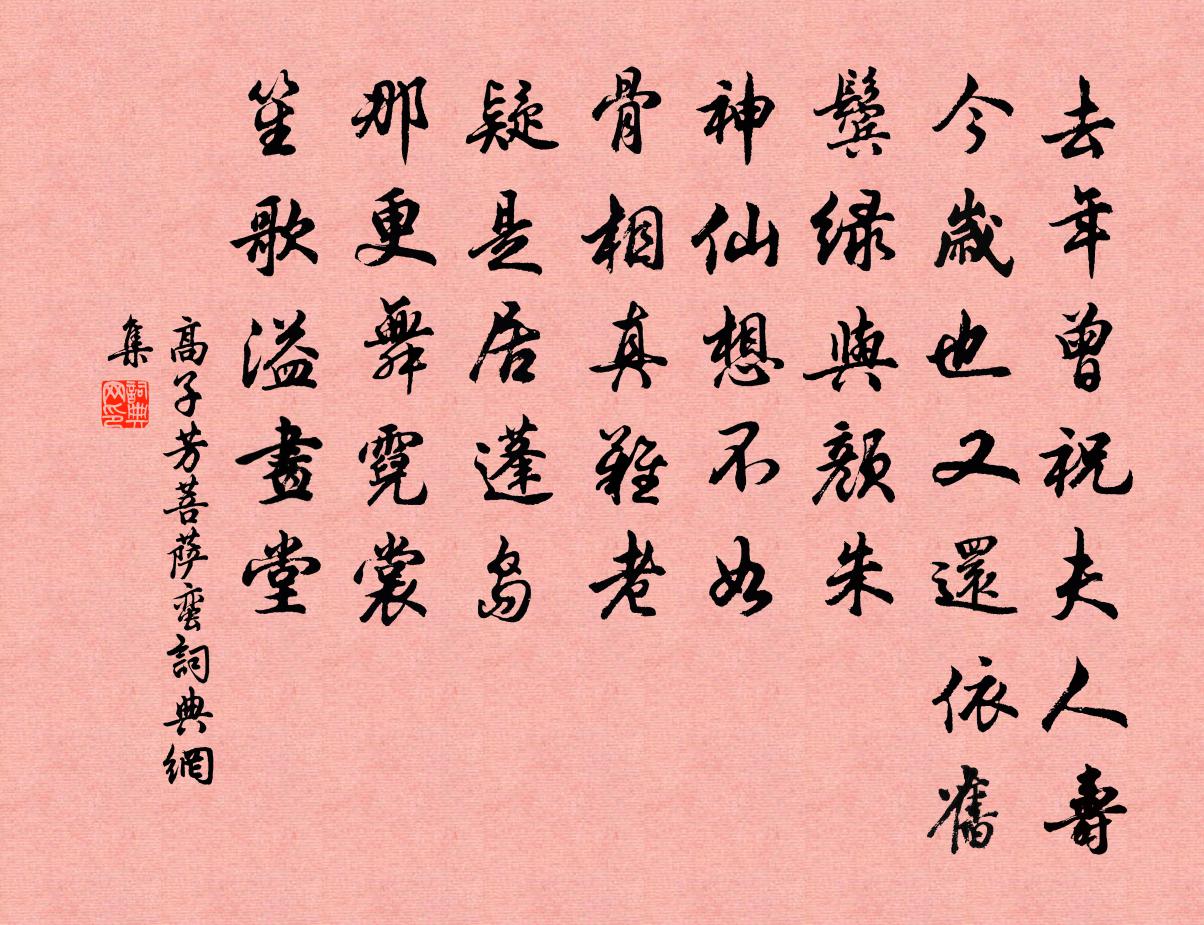 去年曾祝夫人壽
今歲也又還依舊
鬢綠與顏朱
神仙想不如
骨相真難老
疑是居蓬島
那更舞霓裳
笙歌溢畫堂
高子芳菩薩蠻詞典網
集
詞典網印